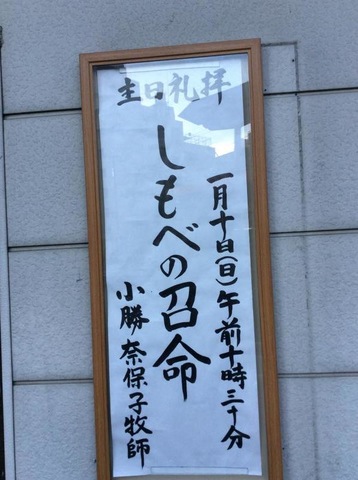 主日礼拝
一月十日(日)午前十時三十分
しもべの召命
小勝奈保子牧師